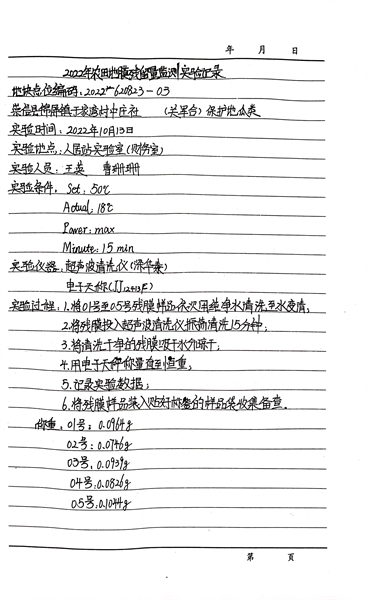 年 月 日
2022年农田地膜残留量监测实验记录
地块点位编码:2022 620823-03
崇信县锦屏镇于家湾村中庄社 (关黑台) 保护地瓜类
实验时间:2022年10月13日
实验地点:人居站实验室(财务室)
实验人员:王英 曹珊珊
实验条件:Set:50℃
Actual:18℃
Power:max
Minute:15min
实验仪器:超声波清洗仪
电子天称(JJ1243F)
实验过程:1.将01号至05号残膜样品依次用纯净水清洗至水变清;
2.将残膜投入超声波清洗仪振荡清洗15分钟;
3.将清洗干净的残膜吸干水分晾干;
4.用电子天秤称量直到恒重;
5.记录实验数据;
6.将残膜样品装入贴好标签的样品袋收集备查.
称重:01号:0.0964g
02号:0.0746g
03号:0.0939g
04号:0.0826g
05号:0.1044g
第 页